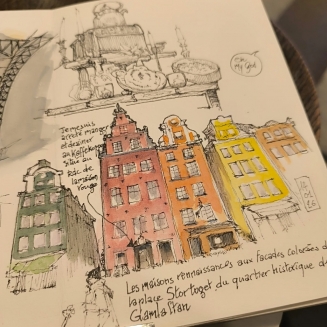 oh my God
Je me suis
arrêté manger
et dessiner
au Kaffekoppen
situé au
RDC de
la maison
rouge
Les maisons renaissances aux façades colorées d
la place Stortoget du quartier historique de
Gamla Stan